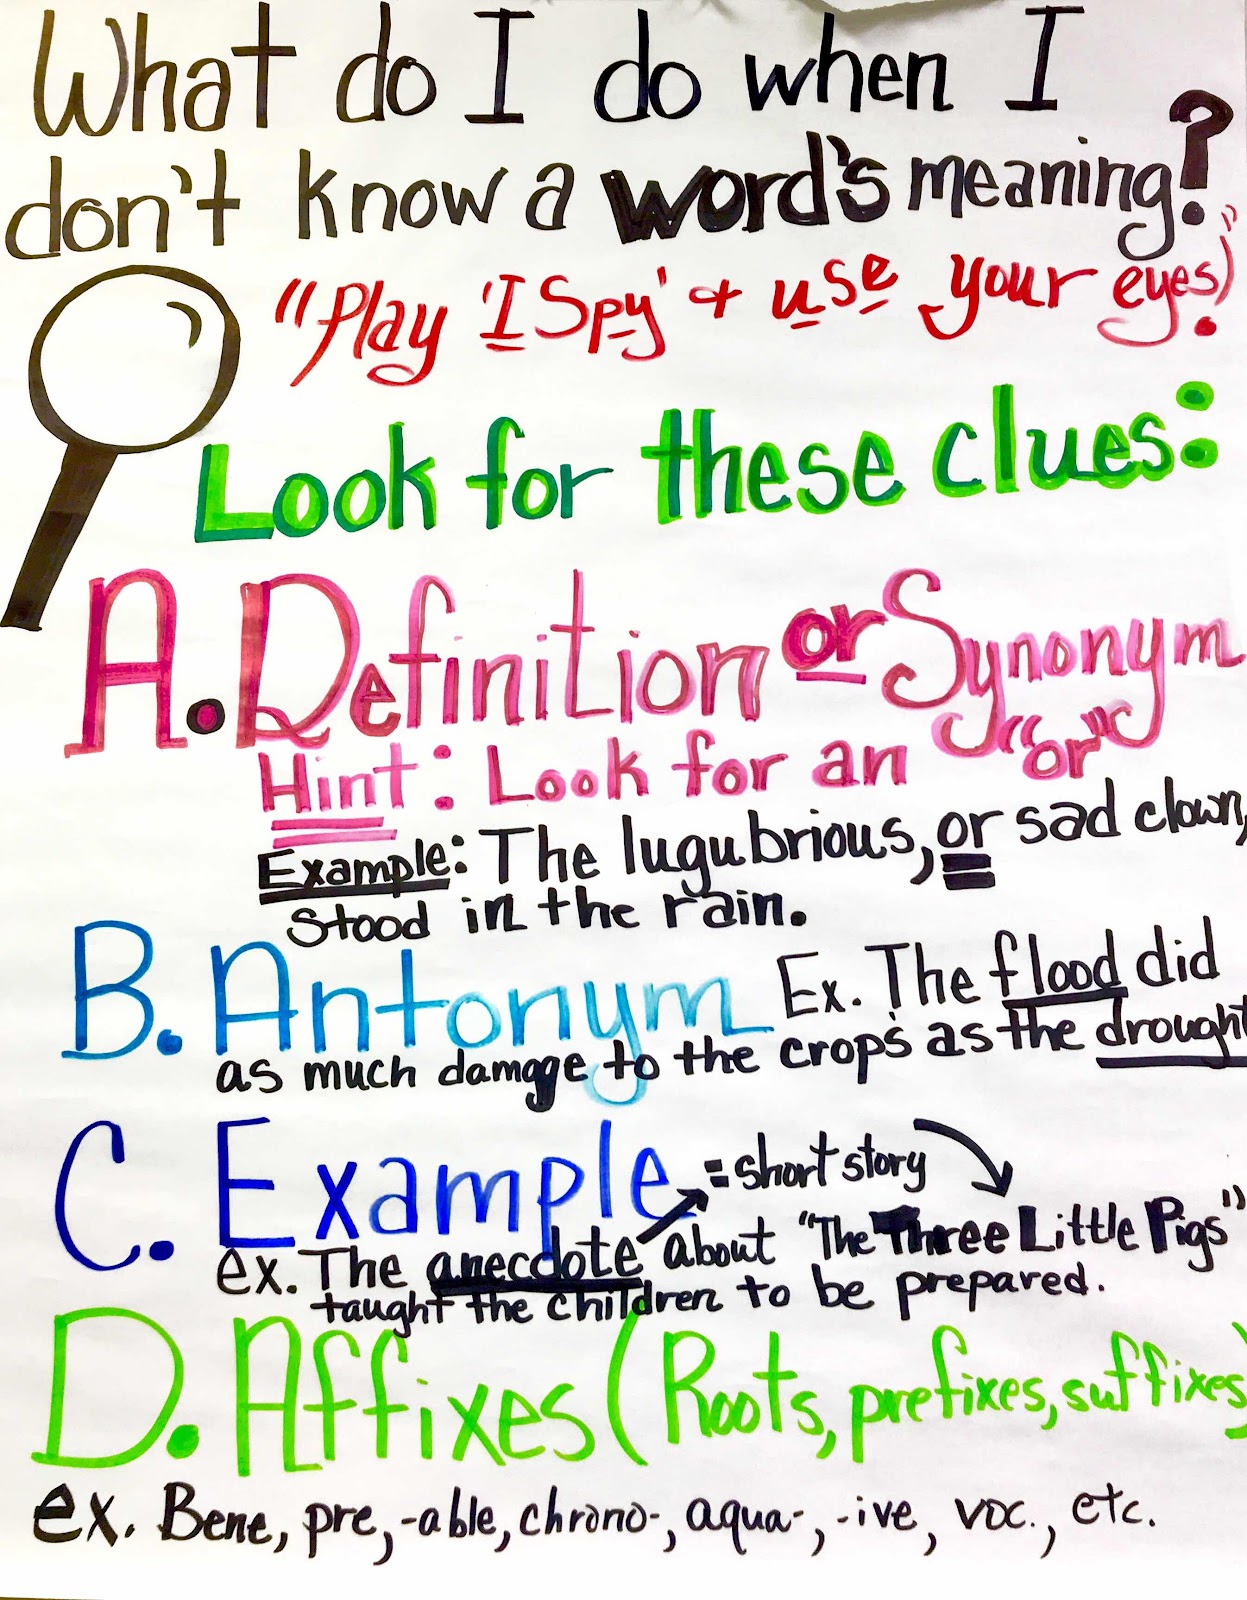 What do I do when I
don't know a word's meaning?
"Play 'I Spy' + use your eyes!"
Look for these clues:
A. Definition or Synonym
Hint: Look for an "or"
Example: The lugubrious, or sad clown,
stood in the rain.
B. Antonym Ex. The flood did
as much damage to the crops as the drought
C. Example = short story
ex. The anecdote about "The Three Little Pigs"
taught the children to be prepared.
D. Affixes (Roots, prefixes, suffixes)
ex. Bene, pre, -able, chrono-, aqua-, -ive, voc., etc.